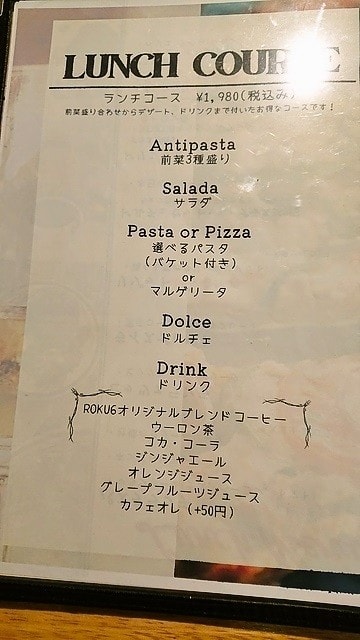 LUNCH COURSE
ランチコース ¥1,980(税込み)
前菜盛り合わせからデザート、ドリンクまで付いたお得なコースです！
Antipasta
前菜3種盛り
Salada
サラダ
Pasta or Pizza
選べるパスタ
(バケット付き)
or
マルゲリータ
Dolce
ドルチェ
Drink
ドリンク
ROKU6オリジナルブレンドコーヒー
ウーロン茶
コカ・コーラ
ジンジャエール
オレンジジュース
グレープフルーツジュース
カフェオレ(+50円)